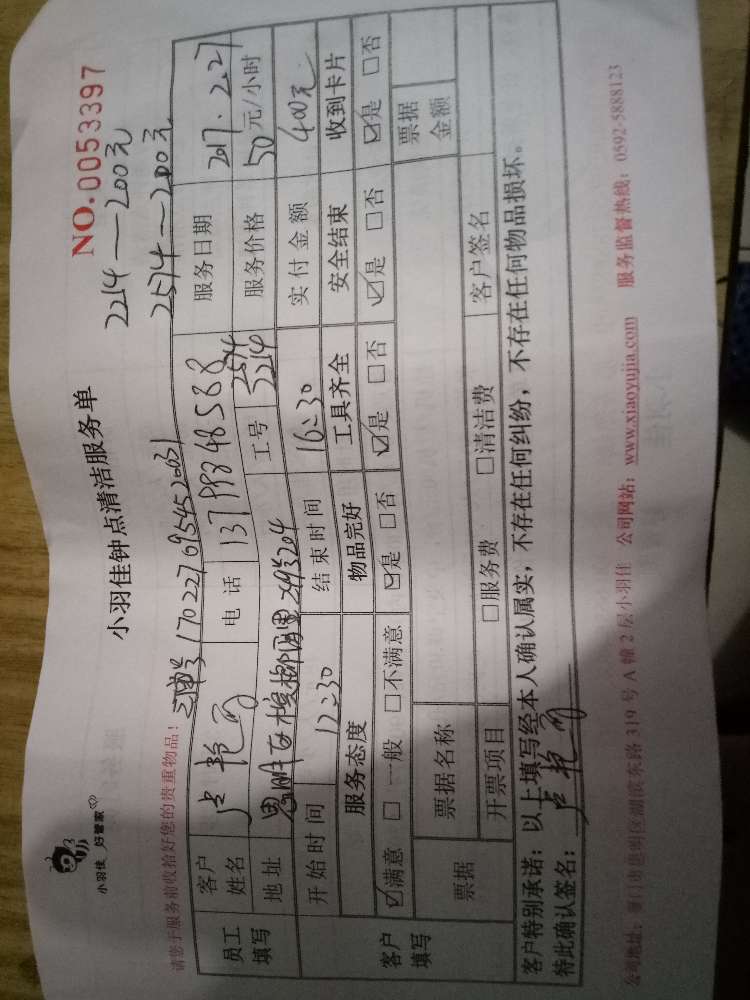 小羽佳 好管家
小羽佳钟点清洁服务单
NO.0053397
2214—200元
2574—200元
请您于服务前收拾好您的贵重物品!
170227695452003
员工填写
客户姓名 卢艳 电话 13799348588 服务日期 2017.2.27
地址 工号 2574 2214 服务价格 50元/小时
客户填写
开始时间 12:30 结束时间 16:30 实付金额 400元
服务态度 物品完好 工具齐全 安全结束 收到卡片
☑满意 □一般 □不满意 ☑是 □否 ☑是 □否 ☑是 □否 ☑是 □否
票据 票据名称 票据金额
开票项目 □服务费 □清洁费 客户签名
客户特别承诺:以上填写经本人确认属实,不存在任何纠纷,不存在任何物品损坏。
特此确认签名:卢艳
公司地址:厦门市思明区湖滨东路319号A幢2层小羽佳 公司网站:www.xiaoyujia.com 服务监督热线:0592-5888123